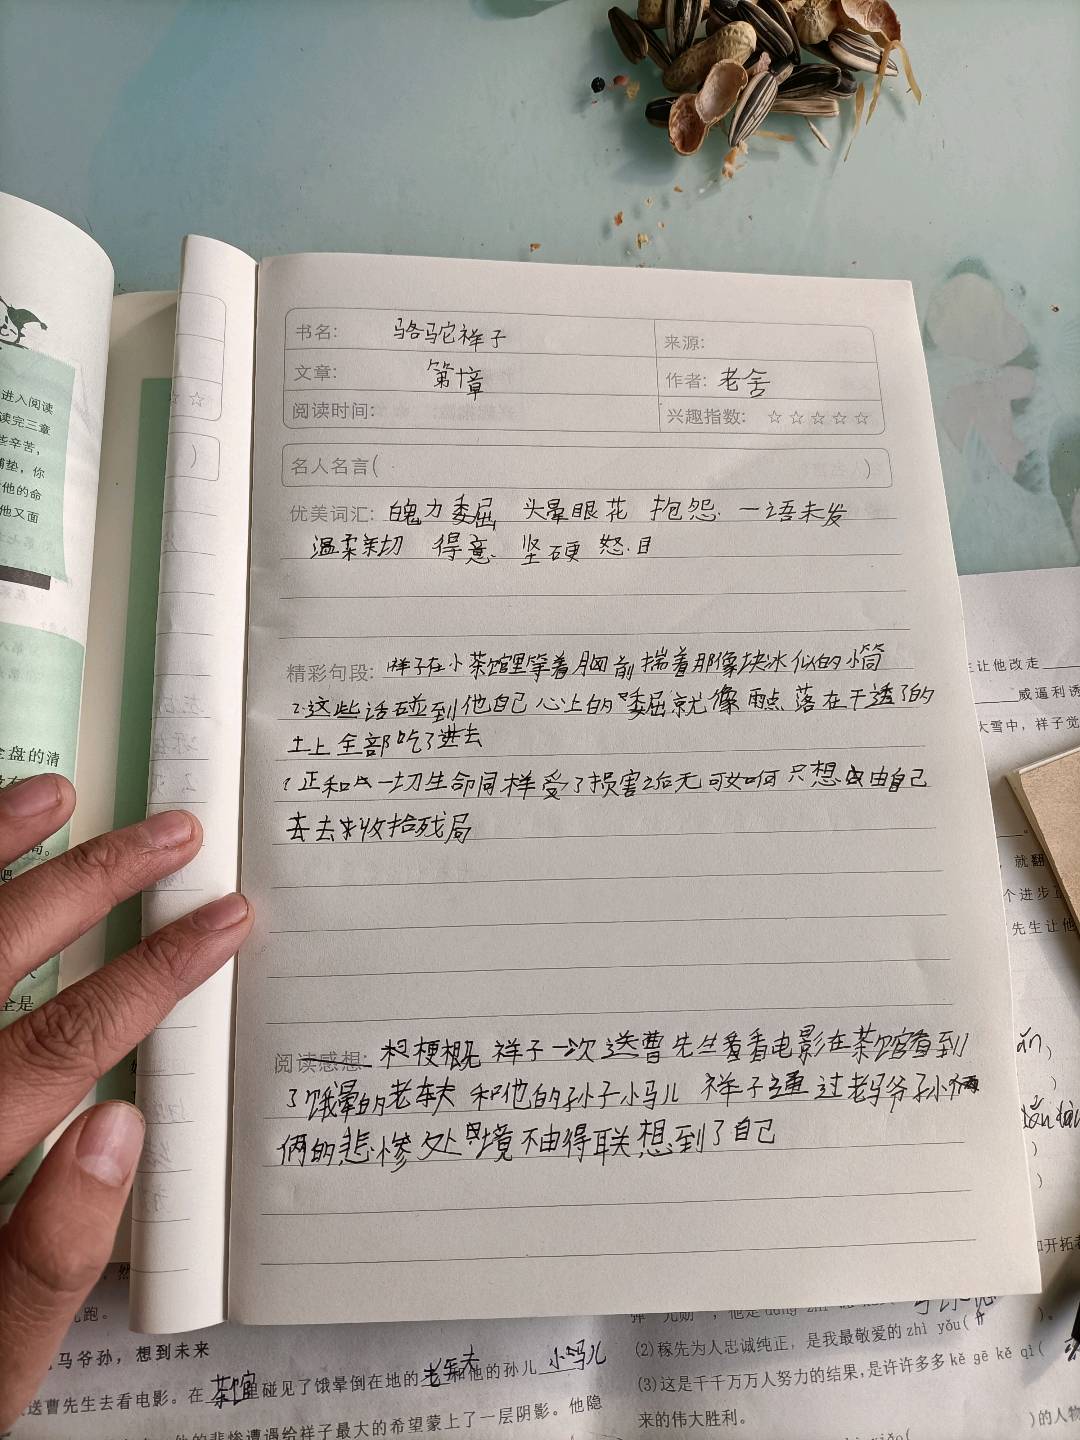 书名: 骆驼祥子 来源:
文章: 第十章 作者: 老舍
阅读时间: 兴趣指数: ☆☆☆☆☆
名人名言( )
优美词汇: 魄力 委屈 头晕眼花 抱怨 一语未发
温柔亲切 得意 坚硬 怒目
精彩句段: 祥子在小茶馆里等着胸前揣着那像块冰似的小筒
2.这些话碰到他自己心上的委屈就像雨点落在干透了的
土上全部吃了进去
正和一切生命同样受了损害之后无可如何只想由自己
去来收拾残局
阅读感想: 梗概 祥子一次送曹先生看电影在茶馆看到
了饿晕的老车夫和他的孙子小马儿 祥子通过老马爷孙
俩的悲惨处境不由得联想到了自己
进入阅读
读完三章
些辛苦,
铺垫,你
他的命
他又面
盘的清
全是
跑。
马爷孙,想到未来
送曹先生去看电影。在茶馆里碰见了饿晕倒在地的老车夫和他的孙儿小马儿
的悲惨遭遇给祥子最大的希望蒙上了一层阴影。他隐
让他改走
威逼利诱
大雪中,祥子觉
就翻
个进步
先生让他
和开拓者
(2)稼先为人忠诚纯正,是我最敬爱的zhì yǒu(
(3)这是千千万万人努力的结果,是许许多多kě gē kě qì(
来的伟大胜利。
)的人物